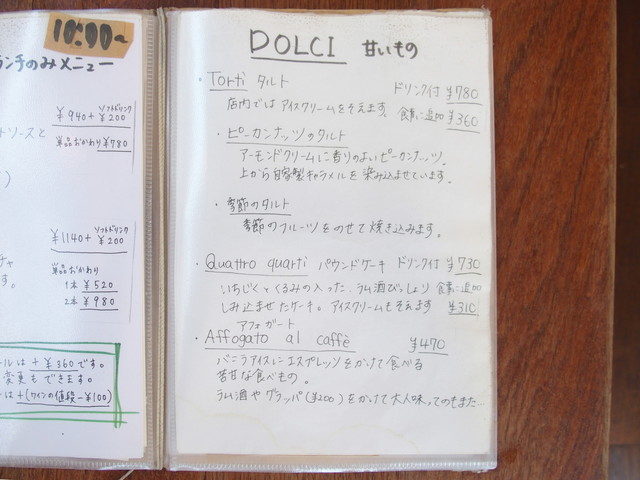 10:00～
ランチのみメニュー
¥940+ ソフトドリンク ¥200
ソースと
単品おかわり ¥780
)
¥1140+ ソフトドリンク ¥200
チャ
単品おかわり
す。
1本 ¥520
2本 ¥980
ールは + ¥360 です。
変更もできます。
は +(ワインの値段-¥100)
DOLCI 甘いもの
・Torti タルト ドリンク付 ¥780
店内では アイスクリームをそえます。 食事に追加 ¥360
・ピーカンナッツのタルト
アーモンドクリームに香りのよいピーカンナッツ。
上から自家製キャラメルを染み込ませています。
・季節のタルト
季節のフルーツをのせて焼き込みます。
・Quattro quarti パウンドケーキ ドリンク付 ¥730
いちじくとくるみの入った ラム酒びっしょり 食事に追加
しみ込ませたケーキ。アイスクリームもそえます ¥310
アフォガート
・Affogato al caffè ¥470
バニラアイスにエスプレッソをかけて食べる
苦甘な食べもの。
ラム酒やグラッパ(¥200)をかけて大人味ってのもまた…